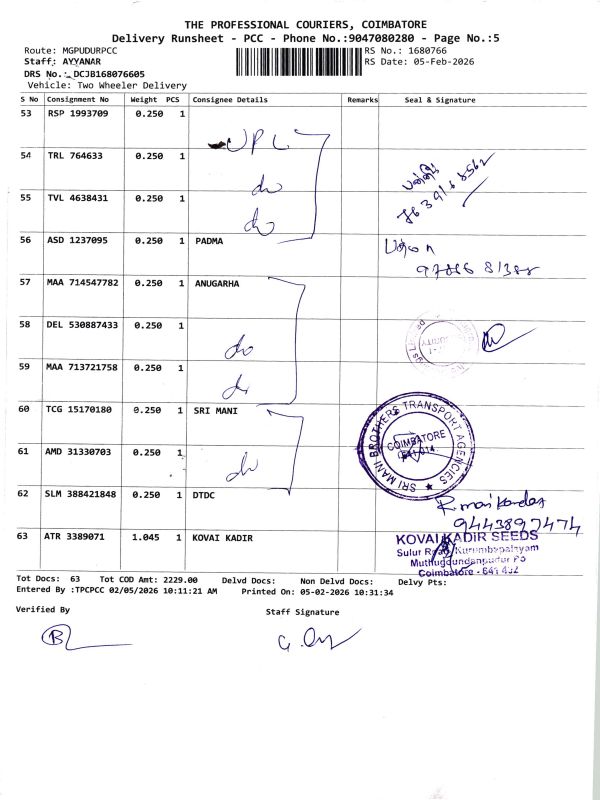 THE PROFESSIONAL COURIERS, COIMBATORE
Delivery Runsheet - PCC - Phone No.:9047080280 - Page No.:5
Route: MGPUDURPCC
RS No.: 1680766
Staff: AYYANAR
RS Date: 05-Feb-2026
DRS No.: DCJB168076605
Vehicle: Two Wheeler Delivery
S No Consignment No Weight PCS Consignee Details Remarks Seal & Signature
53 RSP 1993709 0.250 1 UPC
54 TRL 764633 0.250 1 do
55 TVL 4638431 0.250 1 do
56 ASD 1237095 0.250 1 PADMA
57 MAA 714547782 0.250 1 ANUGARHA
58 DEL 530887433 0.250 1 do
59 MAA 713721758 0.250 1 do
60 TCG 15170180 0.250 1 SRI MANI
SRI MANI BROTHERS TRANSPORT AGENCIES
COIMBATORE
641 014
61 AMD 31330703 0.250 1 do
62 SLM 388421848 0.250 1 DTDC
R. manikandan
9443897474
63 ATR 3389071 1.045 1 KOVAI KADIR
KOVAI KADIR SEEDS
Sulur Road, Kurumbapalayam
Muthugoundanpudur Po
Coimbatore - 641 402
Tot Docs: 63 Tot COD Amt: 2229.00 Delvd Docs: Non Delvd Docs: Delvy Pts:
Entered By :TPCPCC 02/05/2026 10:11:21 AM Printed On: 05-02-2026 10:31:34
Verified By
Staff Signature